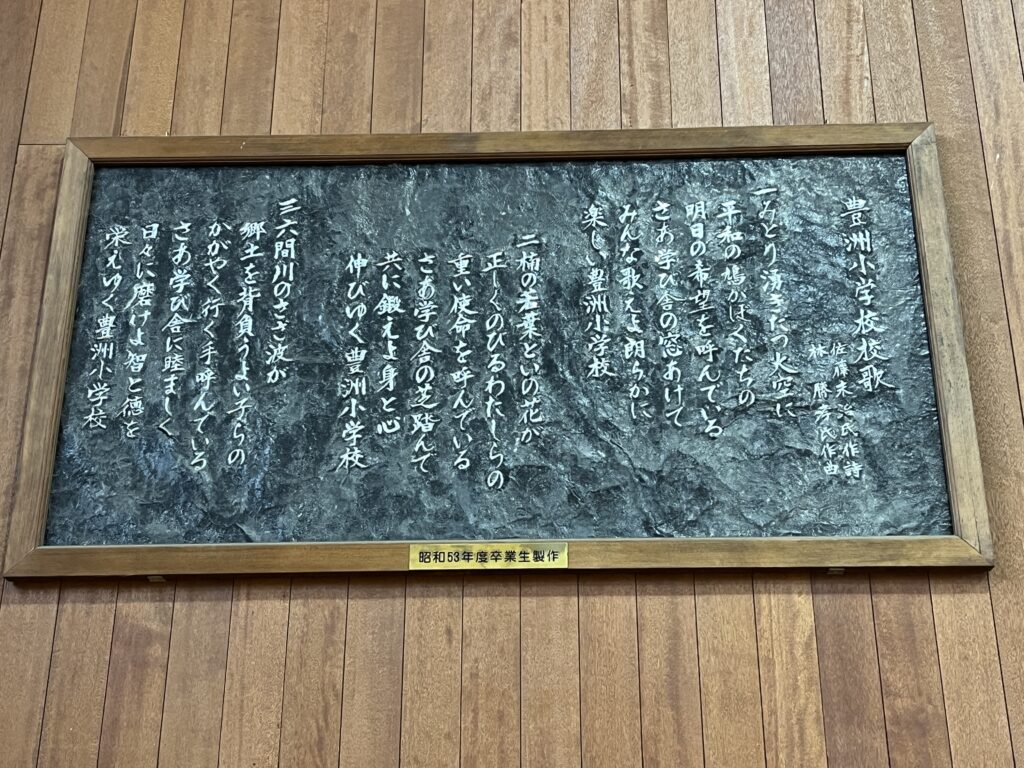 豊洲小学校校歌
佐藤末治氏作詩
林勝彦氏作曲
一みどり湧きたつ大空に
平和の鳩がはばくたちの
明日の希望を呼んでいる
さあ学び舎の窓あけて
みんな歌えよ朗らかに
楽しい豊洲小学校
二楠の若葉といの花が
正しくのびるわたしらの
重い使命を呼んでいる
さあ学び舎の芝踏んで
共に鍛えよ身と心
伸びゆく豊洲小学校
三六間川のささ波が
郷土を背負うよい子らの
かがやく行く手呼んでいる
さあ学び舎に睦ましく
日々に磨けよ智と徳を
栄えゆく豊洲小学校
昭和53年度卒業生製作